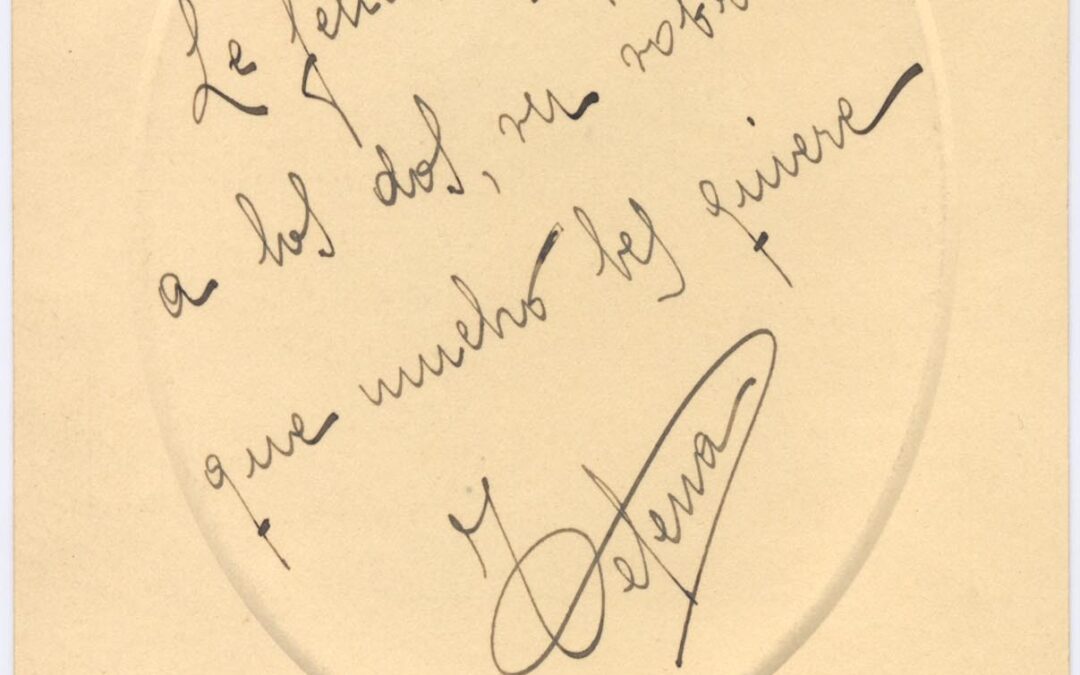 Le
a los dos, su sobr
que mucho les quiere
Helena